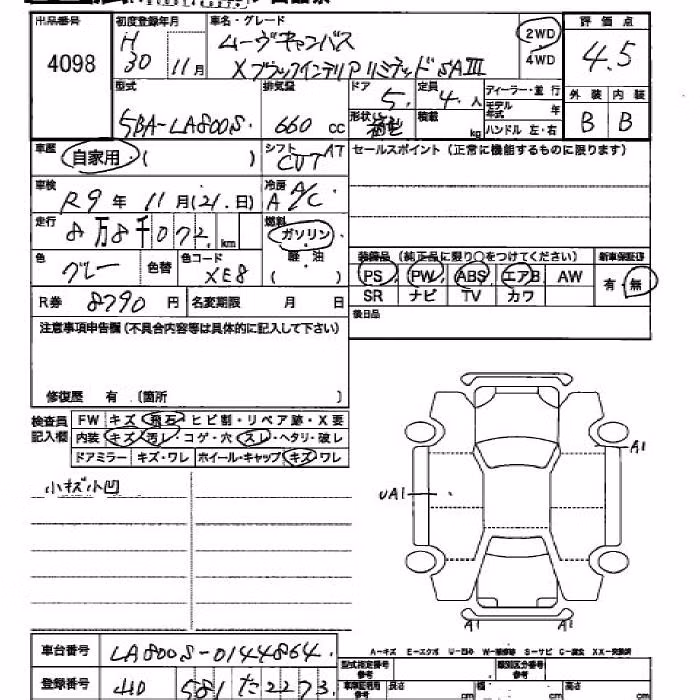 出品番号 初度登録年月 車名・グレード 評価点
4098 H30 11月 ムーヴキャンバス 2WD 4WD 4.5
XブラックインテリアリミテッドSAIII
型式 排気量 ドア 定員 ディーラー・並行 外装 内装
5BA-LA800S 660cc 5 4人 モデル年式 年 B B
形状 積載 kg ハンドル 左・右
車歴 自家用 ( ) シフト CVT AT セールスポイント (正常に機能するものに限ります)
車検 R9年 11月(21日) 冷房 A A/C
走行 8万8千072 km 燃料 ガソリン
軽・油
( )
色 グレー 色替 色コード XE8
装備品 (純正品に限り○をつけてください) 新車保証書
PS PW ABS エアB AW 有・無
SR ナビ TV カワ
R券 8790円 名変期限 月 日 後日品
注意事項申告欄 (不具合内容等は具体的に記入して下さい)
修復歴 有 〔箇所 〕
検査員記入欄 FW キズ・飛石・ヒビ割・リペア跡・X要
内装 キズ・汚レ・コゲ・穴・スレ・ヘタリ・破レ
ドアミラー キズ・ワレ ホイール・キャップ キズ・ワレ
小キズ小凹
A1
UA1
A1 A2
A-キズ E-エクボ U-凹み W-補修跡 S-サビ C-腐食 XX-交換済
車台番号 LA800S-0144864
登録番号 581 た 2273
型式指定番号 類別区分番号
長さ cm 幅 cm 高さ cm